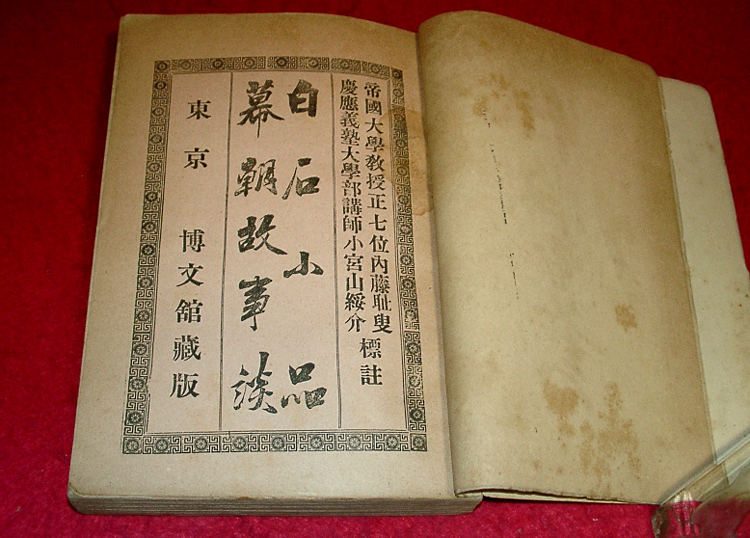 帝國大學教授正七位内藤耻叟
慶應義塾大學部講師小宮山綏介
標註
白石小品
幕朝故事談
東京 博文舘藏版